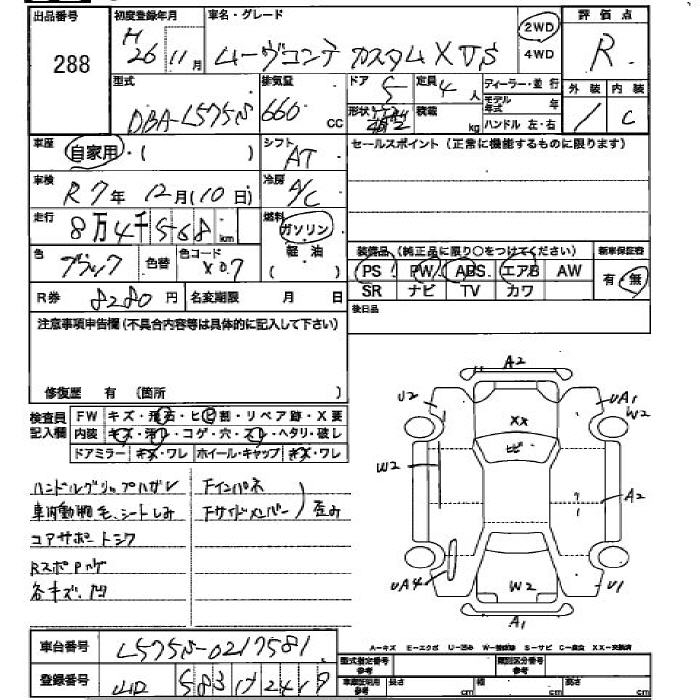 出品番号 288
初度登録年月 H26 11月
車名・グレード ムーヴコンテ カスタム X VS
2WD
4WD
評価点 R
型式 DBA-L575S
排気量 660 CC
ドア 5
定員 4 人
形状
積載 kg
ディーラー・並行
モデル年式 年
ハンドル 左・右
外装 内装
/ C
車歴 自家用・( )
シフト AT
セールスポイント (正常に機能するものに限ります)
車検 R7年 12月(10日)
冷房 A/C
走行 8万4千568 km
燃料 ガソリン
軽油
( )
色 ブラック 色替
色コード X07
装備品 (純正品に限り○をつけてください)
新車保証書
PS PW ABS エアB AW
有・無
SR ナビ TV カワ
R券 8280 円
名変期限 月 日
後日品
注意事項申告欄(不具合内容等は具体的に記入して下さい)
修復歴 有 (箇所 )
検査員記入欄
FW キズ・飛石・ヒビ割・リペア跡・X要
内装 キズ・汚レ・コゲ・穴・スレ・ヘタリ・破レ
ドアミラー キズ・ワレ ホイール・キャップ キズ・ワレ
ハンドルグリップハガレ
車内動物毛、シートしみ
コアサポートシワ
各キズ、凹
Fインパネ
Fサイドメンバー
歪み
A2
U2
UA1
W2
XX
ヒビ
W2
A2
UA4
W2
U1
A1
車台番号 L575S-0217581
登録番号 583 2419
A−キズ E−エクボ U−凹み W−補修跡 S−サビ C−腐食 XX−交換済
型式指定番号 参考
類別区分番号 参考
車庫証明用 参考
長さ cm 幅 cm 高さ cm